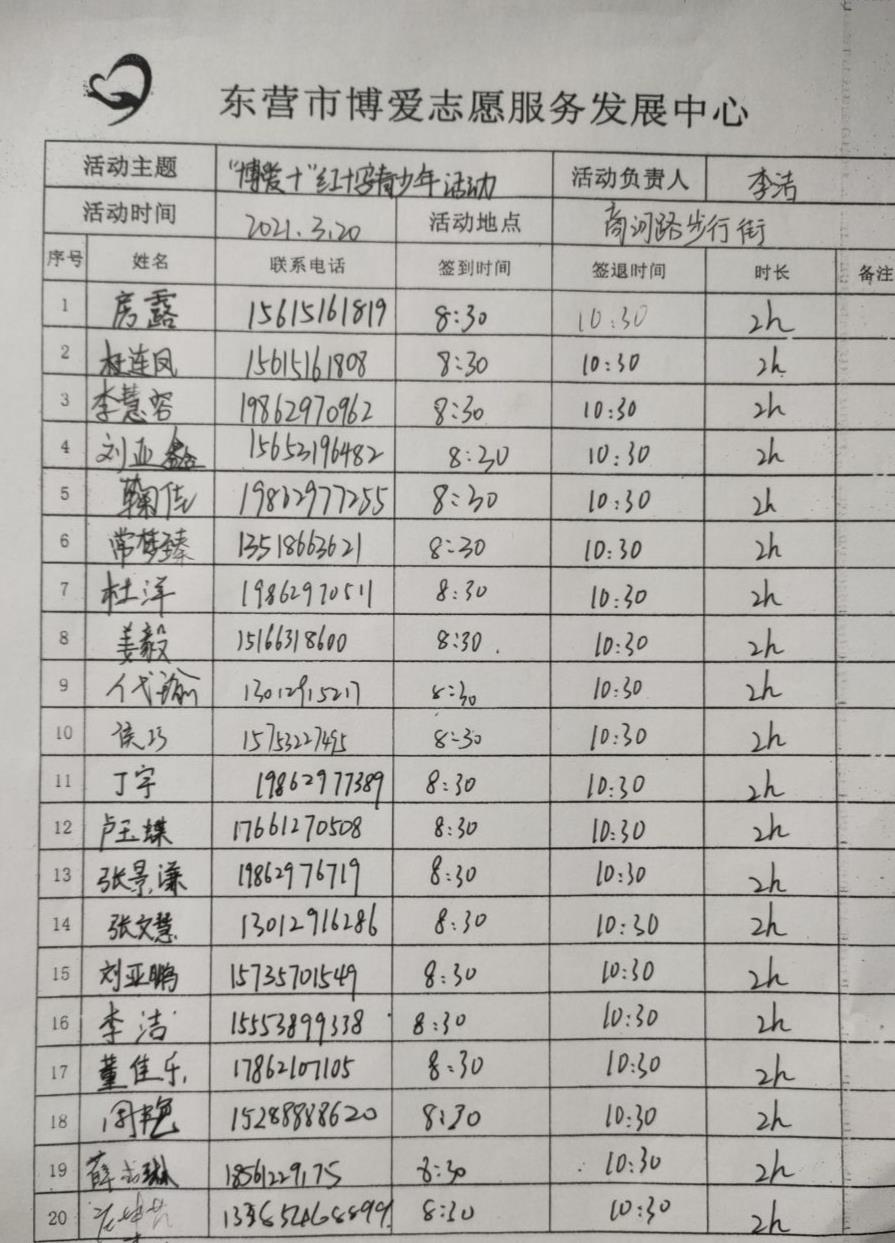 东营市博爱志愿服务发展中心
活动主题 “博爱十”红十字青少年活动 活动负责人 李洁
活动时间 2021.3.20 活动地点 商河路步行街
序号 姓名 联系电话 签到时间 签退时间 时长 备注
1 房露 15615161819 8:30 10:30 2h
2 杜连凤 15615161808 8:30 10:30 2h
3 李慧容 19862970962 8:30 10:30 2h
4 刘亚鑫 15653196482 8:30 10:30 2h
5 鞠佳 19862977255 8:30 10:30 2h
6 常梦臻 13518663621 8:30 10:30 2h
7 杜洋 19862970511 8:30 10:30 2h
8 姜毅 15166318600 8:30 10:30 2h
9 代瑜 13012915217 8:30 10:30 2h
10 侯巧 15753227495 8:30 10:30 2h
11 丁宇 19862977389 8:30 10:30 2h
12 卢玉蝶 17661270508 8:30 10:30 2h
13 张景濂 19862976719 8:30 10:30 2h
14 张文慧 13012916286 8:30 10:30 2h
15 刘亚鹏 15735701549 8:30 10:30 2h
16 李洁 15553899338 8:30 10:30 2h
17 董佳乐 17862107105 8:30 10:30 2h
18 周艳 15288888620 8:30 10:30 2h
19 薛 8:30 10:30 2h
20 8:30 10:30 2h